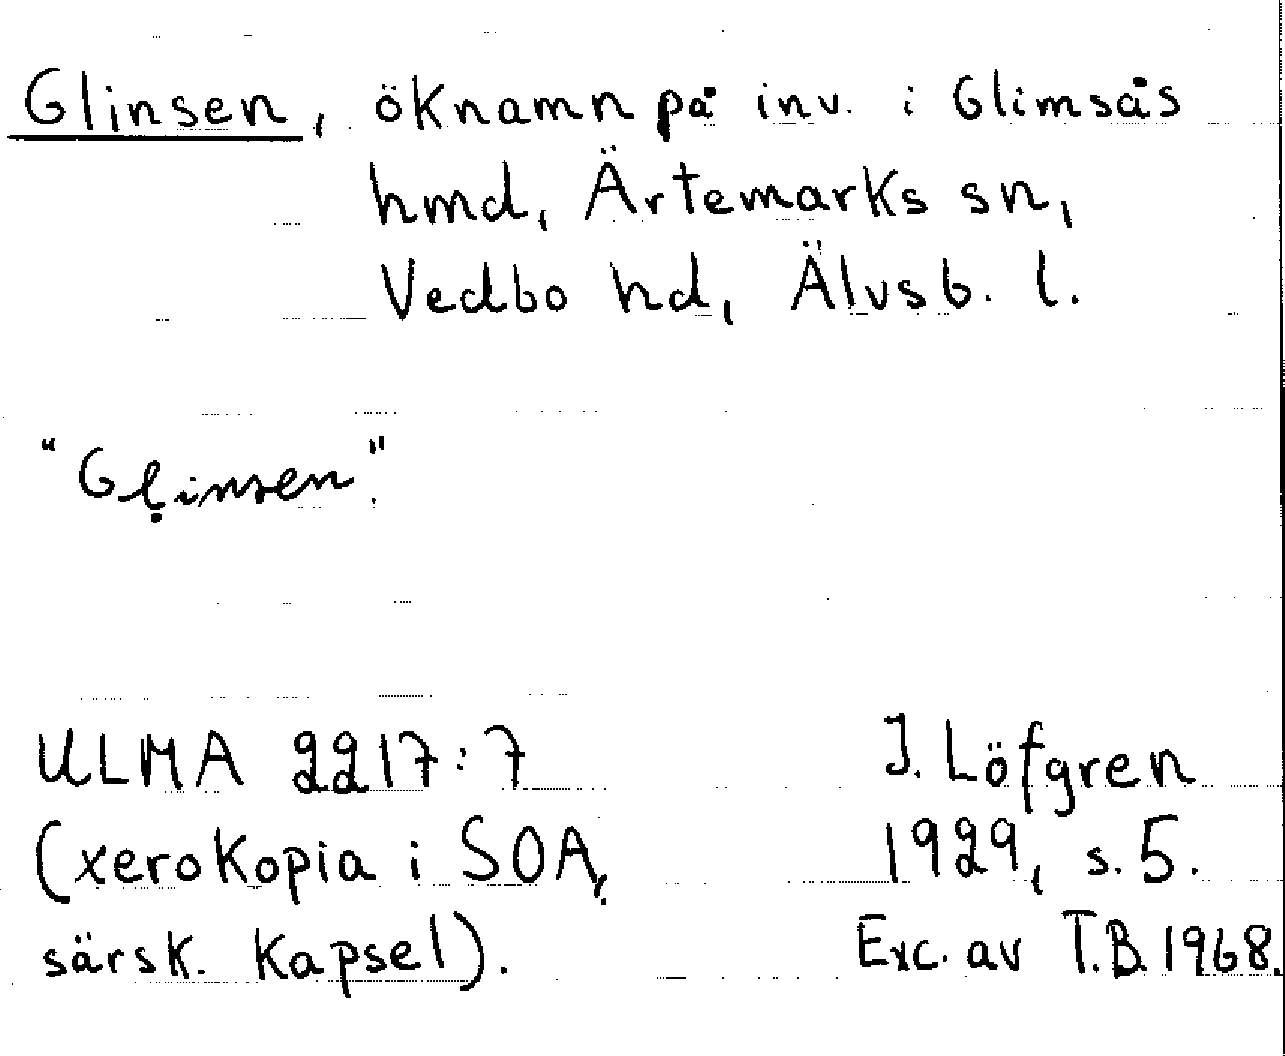 Glinsen, öknamn på inv. i Glimsås
hmd, Ärtemarks sn,
Vedbo hd, Älvsb. l.
"Gḷinsen".
ULMA 2217:7
(xerokopia i SOA,
särsk. kapsel).
J. Löfgren
1929, s. 5.
Exc. av T.B. 1968.